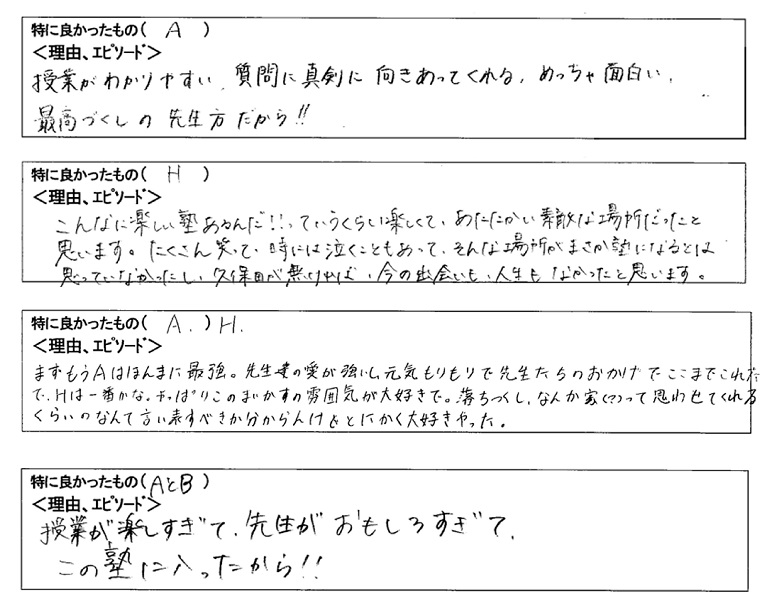 特に良かったもの( A )
＜理由、エピソード＞
授業がわかりやすい、質問に真剣に向きあってくれる、めっちゃ面白い、
最高づくしの先生方だから!!
特に良かったもの( H )
＜理由、エピソード＞
こんなに楽しい塾あるんだ!!っていうくらい楽しくて、あたたかい素敵な場所だったと
思います。たくさん笑って、時には泣くこともあって、そんな場所がまさか塾になるとは
思っていなかったし、久保田が無ければ、今の出会いも、人生もなかったと思います。
特に良かったもの( A. ) H.
＜理由、エピソード＞
まずもうAはほんまに最強。先生達の愛が強いし、元気もりもりで先生たちのおかげでここまでこれた
で、Hは一番かな。やっぱりこの雰囲気が大好きで。落ちつくし、なんか家(?)って思わせてくれる
くらいのなんて言い表すべきか分からんけどとにかく大好きやった。
特に良かったもの( AとB )
＜理由、エピソード＞
授業が楽しすぎて、先生がおもしろすぎて、
この塾に入ったから!!